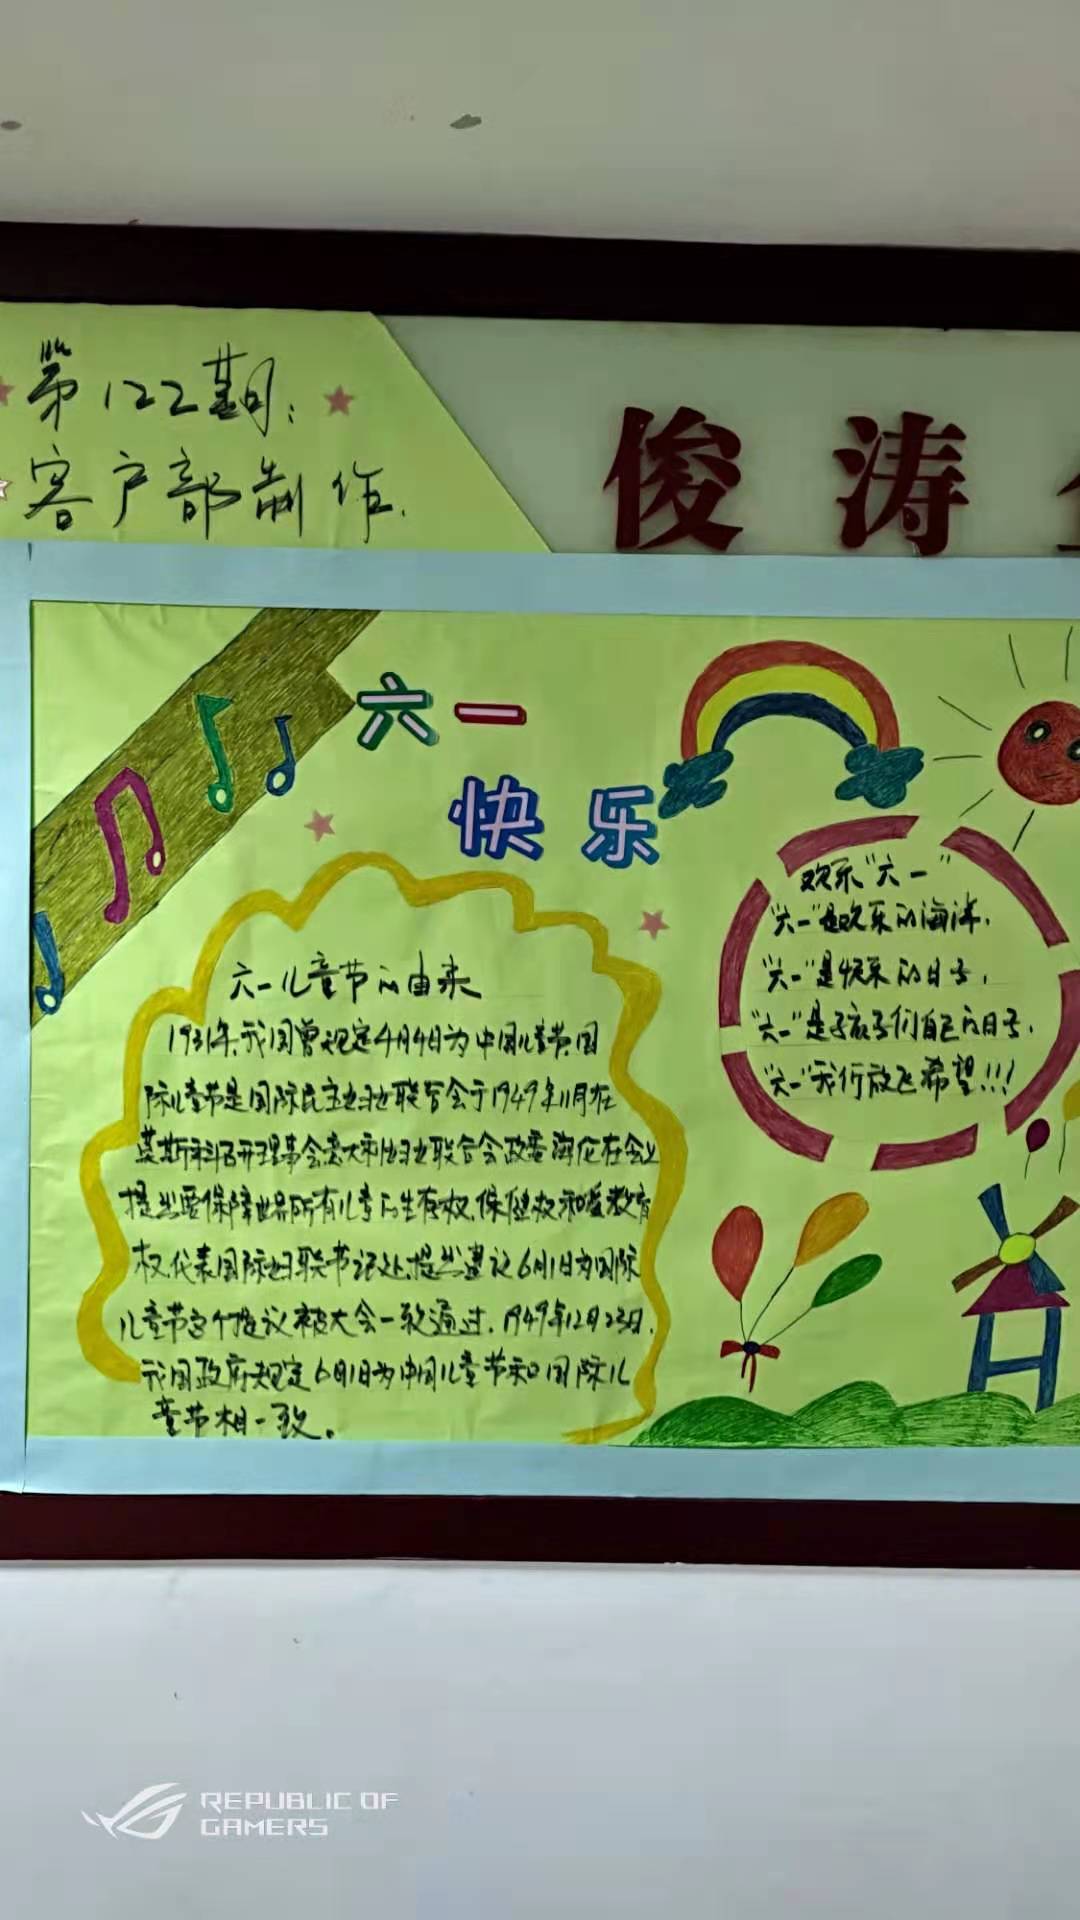 第122期:
客户部制作.
俊涛
六一
快乐
欢乐“六一”
“六一”是欢乐的海洋,
“六一”是快乐的日子,
“六一”是孩子们自己的日子,
“六一”我们放飞希望!!!
六一儿童节的由来
1931年,我国曾规定4月4日为中国儿童节.国
际儿童节是国际民主妇女联合会于1949年11月在
莫斯科召开理事会意大利妇女联合会政委 在会上
提出要保障世界所有儿童的生存权.保健权和受教育
权代表国际妇联书记处提出建议6月1日为国际
儿童节这个提议被大会一致通过.1949年12月23日,
我国政府规定6月1日为中国儿童节和国际儿
童节相一致。
REPUBLIC OF
GAMERS